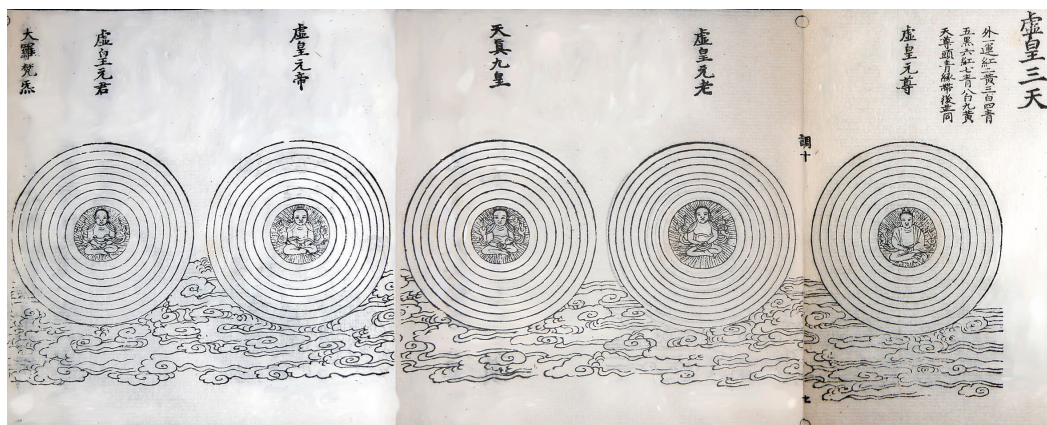 虛皇三天
外一運紅二黃三白四青
五黑六紅七青八白九黃
天尊頭青緑帶後並同
虛皇元尊
調十
七
虛皇元老
天真九皇
虛皇元帝
虛皇元君
大羅梵炁